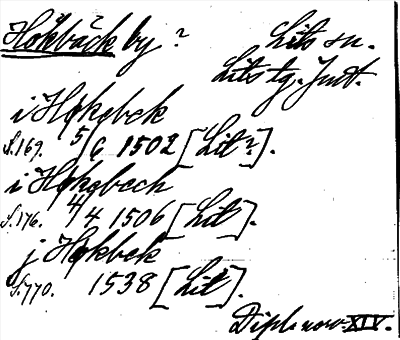 Hökbäck by ?
Lits sn.
Lits tg. Jmt.
i Høkebek
S.169. 5/6 1502 [Lit?].
i Høkebech
S.176. 4/4 1506 [Lit].
j Høkbek
S.770. 1538 [Lit].
Dipl. norv. XIV.